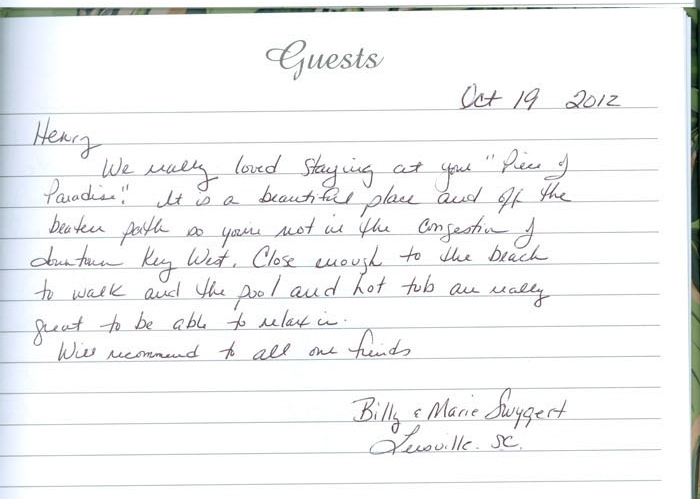 Guests
Oct 19 2012
Henry
We really loved staying at your "Piece of
Paradise." It is a beautiful place and off the
beaten path so you're not in the congestion of
downtown Key West. Close enough to the beach
to walk and the pool and hot tub are really
great to be able to relax in.
Will recommend to all our friends
Billy & Marie Swygert
Leesville. SC.